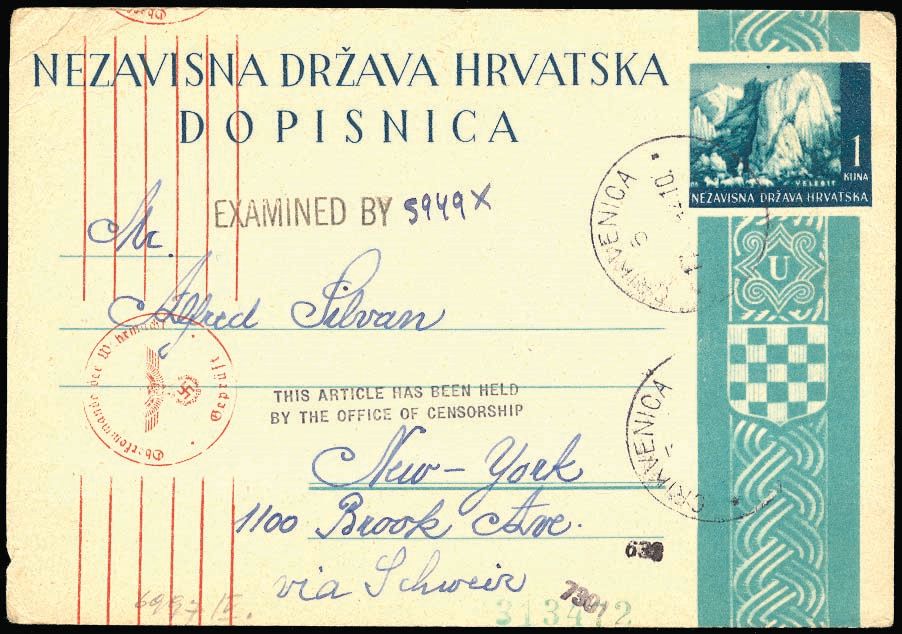 NEZAVISNA DRŽAVA HRVATSKA
DOPISNICA
1
KUNA
VELEBIT
NEZAVISNA DRŽAVA HRVATSKA
EXAMINED BY 5949X
CRIKVENICA
Mr.
U
Alfred Silvan
Oberkommando der Wehrmacht
Geprüft
THIS ARTICLE HAS BEEN HELD
BY THE OFFICE OF CENSORSHIP
CRIKVENICA
New-York
1100 Brook Ave.
via Schweiz
7307
313472
6997 IV.